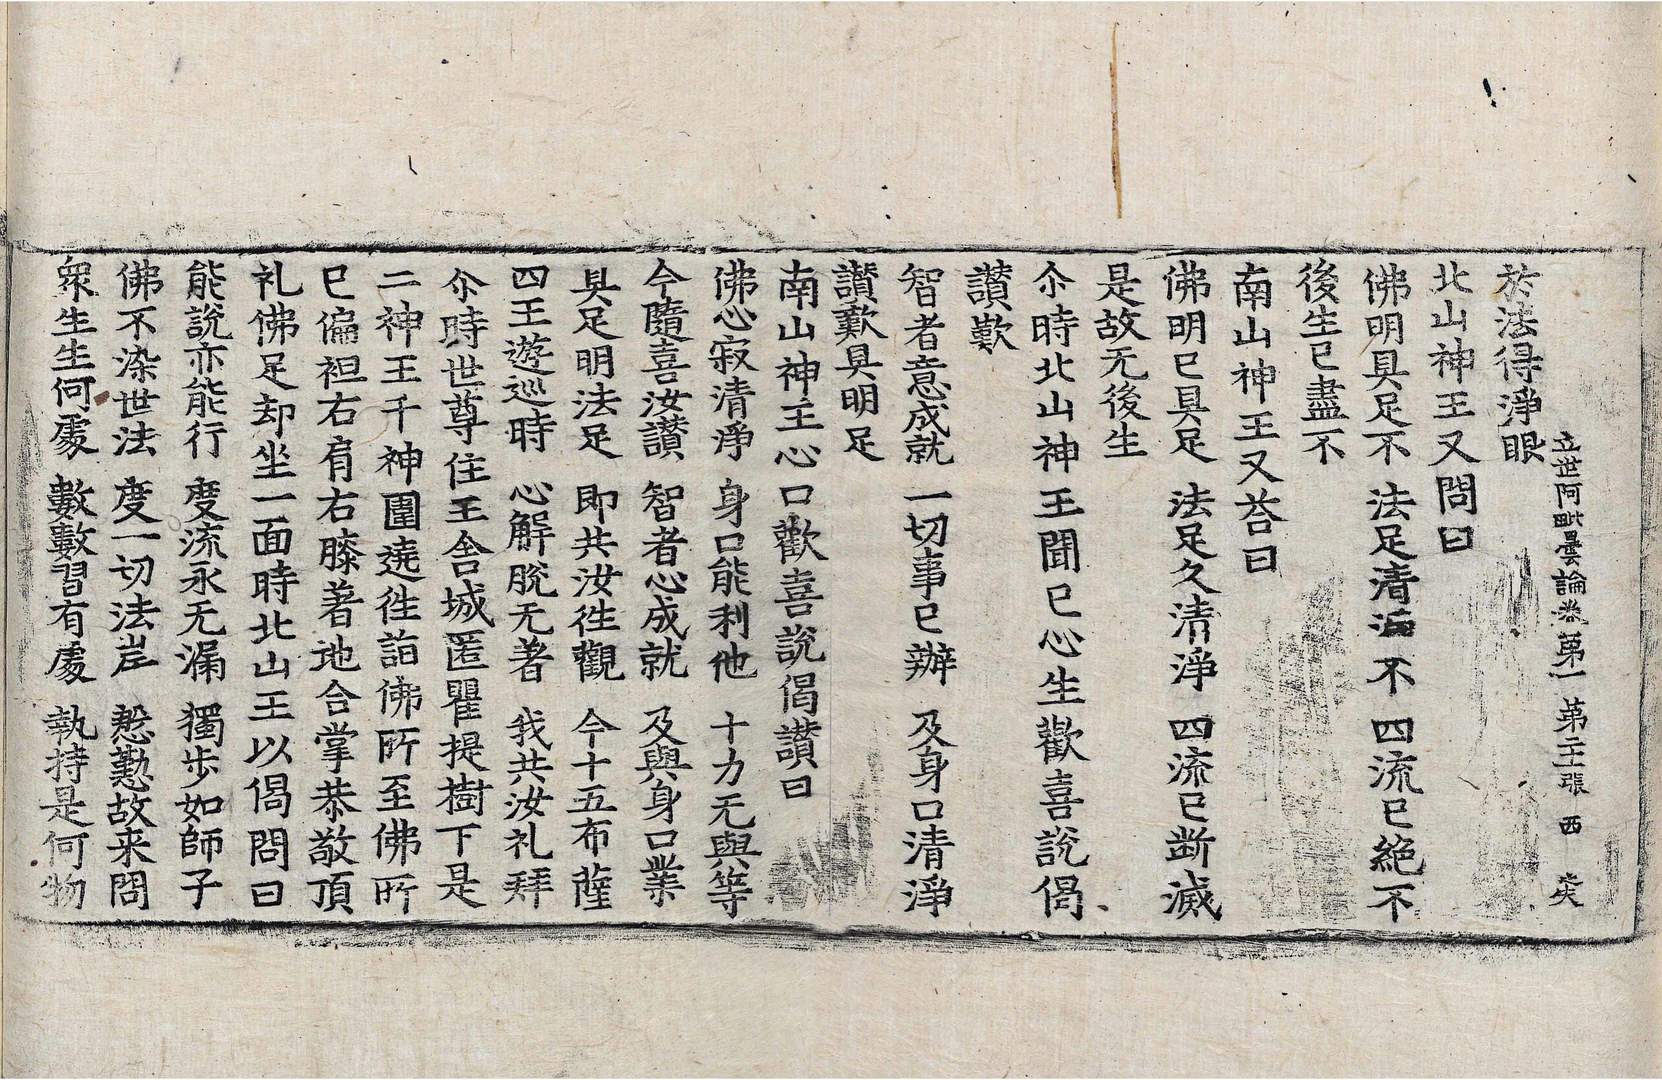 立世阿毗曇論卷第一 第二十張 西
於法得淨眼
北山神王又問曰
佛明具足不 法足清淨不 四流已絕不
後生已盡不
南山神王又荅曰
佛明已具足 法足久清淨 四流已斷滅
是故无後生
尒時北山神王聞已心生歡喜說偈
讃歎
智者意成就 一切事已辦 及身口清淨
讃歎具明足
南山神王心口歡喜說偈讃曰
佛心寂清淨 身口能利他 十力无與等
今隨喜汝讃 智者心成就 及與身口業
具足明法足 即共汝徃觀 今十五布薩
四王遊巡時 心解脫无著 我共汝礼拜
尒時世尊住王舍城匿瞿提樹下是
二神王千神圍遶徃詣佛所至佛所
已偏袒右肩右膝著地合掌恭敬頂
礼佛足却坐一面時北山王以偈問曰
能說亦能行 度流永无漏 獨步如師子
佛不染世法 度一切法岸 慇懃故来問
衆生生何處 數數習有處 執持是何物